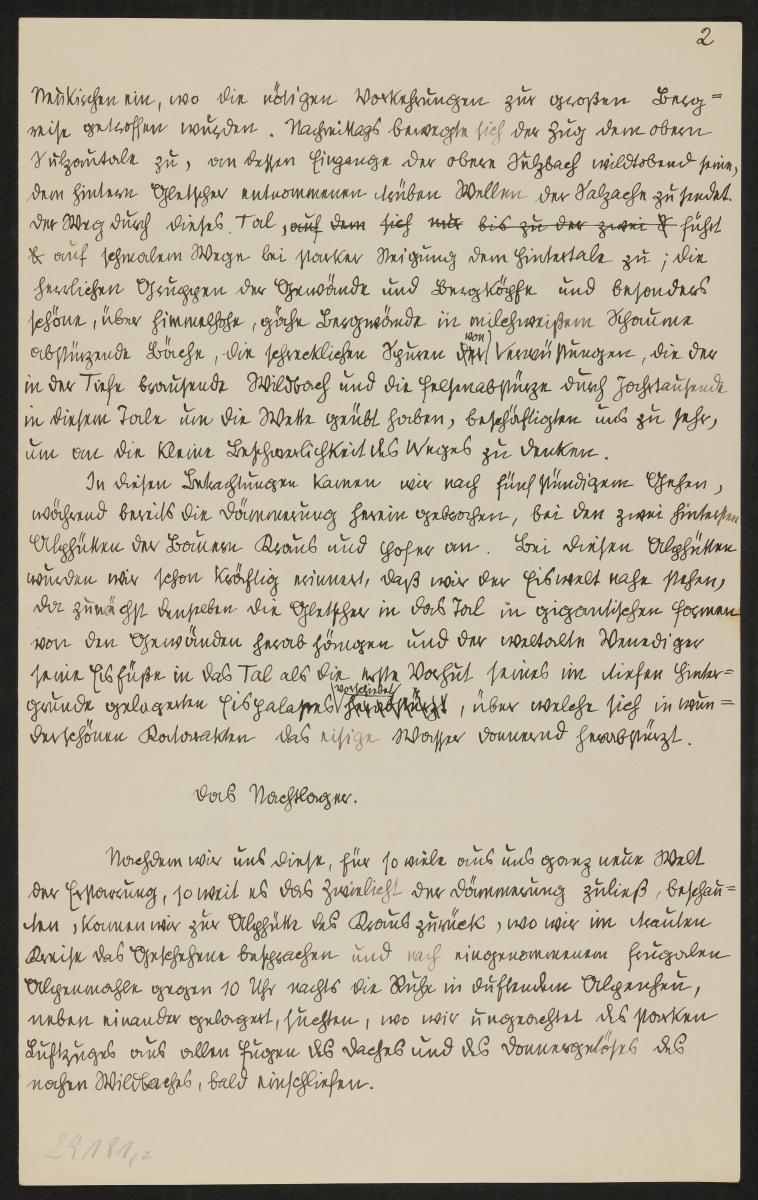 2
Neukirchen ein, wo die nötigen Vorkehrungen zur großen Berg=
reise getroffen wurden. Nachmittags bewegte sich der Zug dem obern
Sulzautale zu, an dessen Eingange der obere Sulzbach wildtobend seine,
dem hintern Gletscher entnommenen trüben Wellen der Salzache zusendet.
Der Weg durch dieses Tal, auf dem sich nur bis zu der zwei führt
auf schmalem Wege bei starker Steigung dem Hintertale zu; die
herrlichen Gruppen der Gewände und Bergköpfe und besonders
schöne, über himmelhohe, gähe Bergwände in milchweißem Schaume
abstürzende Bäche, die schrecklichen Spuren der von Verwüstungen, die der
in der Tiefe brausende Wildbach und die Felsenabstürze durch Jahrtausende
in diesem Tale um die Wette geübt haben, beschäftigten uns zu sehr,
um an die kleine Beschwerlichkeit des Weges zu denken.
In diesen Betrachtungen kamen wir nach fünfstündigem Gehen,
während bereits die Dämmerung herein gebrochen, bei den zwei hintersten
Alphütten der Bauern Kraus und Hofer an. Bei diesen Alphütten
wurden wir schon kräftig erinnert, daß wir der Eiswelt nahe stehen,
da zunächst denselben die Gletscher in das Tal in gigantischen Formen
von den Gewänden herab hängen und der weltalte Venediger
seine Eisfüße in das Tal als die erste Vorhut seines im tiefen Hinter=
grunde gelagerten Eispalastes vorschiebet herabstürzt, über welche sich in wun=
derschönen Katarakten das eisige Wasser donnernd herabstürzt.
Das Nachtlager.
Nachdem wir uns diese, für so viele aus uns ganz neue Welt
der Erstarrung, so weit es das Zwielicht der Dämmerung zuließ, beschau=
ten, kamen wir zur Alphütte des Kraus zurück, wo wir im trauten
Kreise das Geschehene besprachen und nach eingenommenem frugalen
Alpenmahle gegen 10 Uhr nachts die Ruhe in duftendem Alpenheu,
neben einander gelagert, suchten, wo wir ungeachtet des starken
Luftzuges aus allen Fugen des Daches und des Donnergetöses des
nahen Wildbaches, bald einschliefen.
29181,2